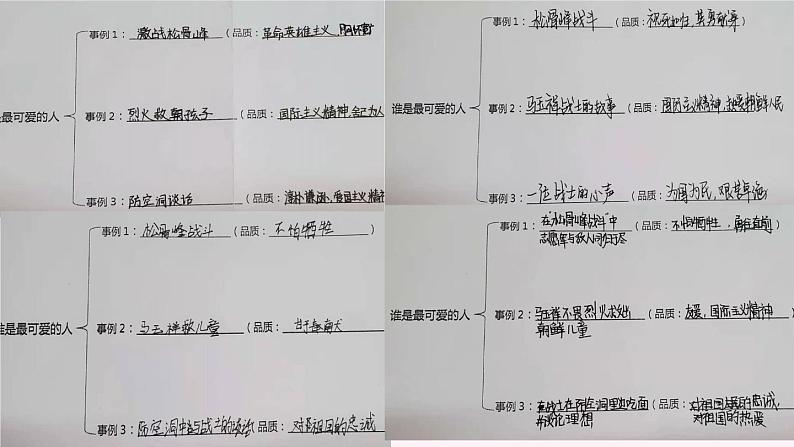 事例 1： 激战松骨峰 （品质： 革命英雄主义，
是最可爱的人
事例 2： 烈火救朝孩子 （品质： 国际主义精神，舍己为人
事例 3： 防空洞谈话 （品质： 淳朴谦逊，爱国主义精神
事例 1： 松骨峰战斗 （品质： 视死如归，英勇献身 ）
谁是最可爱的人
事例 2： 马玉祥战士的故事 （品质： 国际主义精神，热爱朝鲜人民
事例 3： 一位战士的心声 （品质： 为国为民，
事例 1： 松骨峰战斗 （品质： 不怕牺牲 ）
谁是最可爱的人
事例 2： 马玉祥救儿童 （品质： 甘于奉献
事例 3： 防空洞中与战士的谈话 （品质： 对祖国的忠诚
事例 1： 在“松骨峰战斗”中
志愿军与敌人同归于尽
（品质： 不怕牺牲，勇往直前 ）
谁是最可爱的人
事例 2： 马玉祥不畏烈火救出
朝鲜儿童
（品质： 友爱，国际主义精神 ）
事例 3： 在战士在防空洞里吃
理想
（品质： 对祖国的忠诚，
对祖国的热爱